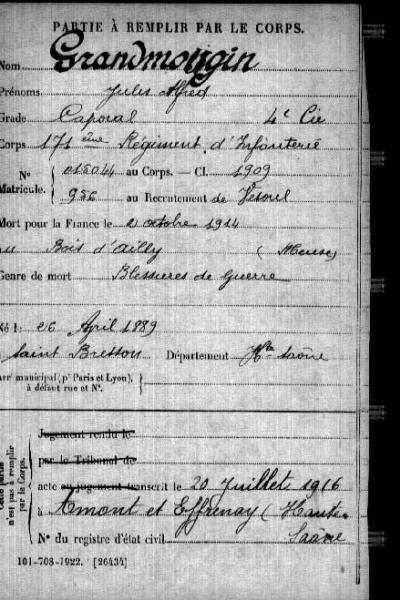 PARTIE À REMPLIR PAR LE CORPS.
Nom Grandmougin
Prénoms Jules Alfred
Grade Caporal 4e Cie
Corps 171 ème Régiment d'Infanterie
N° 015044 au Corps. — Cl. 1909
Matricule. 956 au Recrutement de Vesoul
Mort pour la France le 2 octobre 1914
au Bois d'Ailly (Meuse)
Genre de mort Blessures de guerre
Né le 26 April 1889
à Saint Bresson Département Hte Saône
Arrt municipal (pr Paris et Lyon), à défaut rue et N°.
Cette partie n'est pas à remplir par le Corps.
Jugement rendu le
par le Tribunal de
acte ou jugement transcrit le 20 Juillet 1916
à Amont et Effrenay (Haute
Saône
N° du registre d'état civil
101-708-1922. [26434]